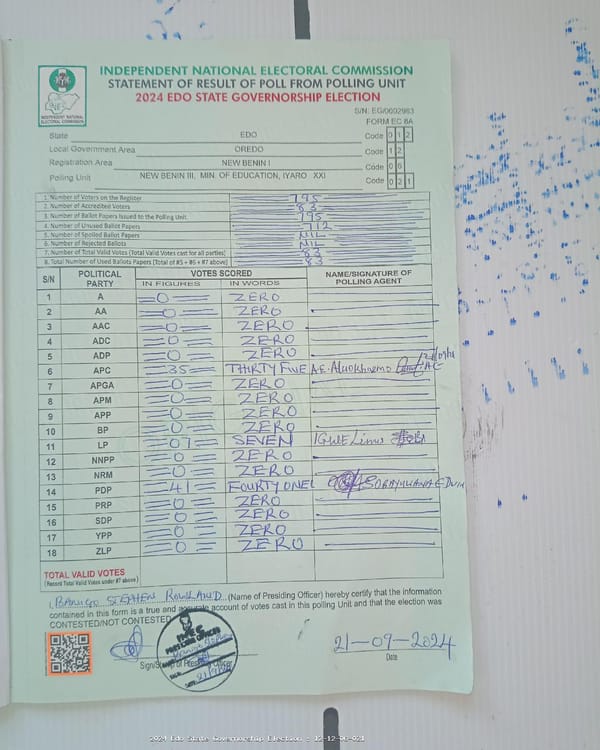 INDEPENDENT NATIONAL ELECTORAL COMMISSION
STATEMENT OF RESULT OF POLL FROM POLLING UNIT
2024 EDO STATE GOVERNORSHIP ELECTION
S/N: EG/0002983
FORM EC 8A
INDEPENDENT NATIONAL ELECTORAL COMMISSION
State EDO Code 0 1 2
Local Government Area OREDO Code 1 2
Registration Area NEW BENIN I Code 0 6
Polling Unit NEW BENIN III, MIN. OF EDUCATION, IYARO XXI Code 0 2 1
1. Number of Voters on the Register 795
2. Number of Accredited Voters 83
3. Number of Ballot Papers Issued to the Polling Unit 795
4. Number of Unused Ballot Papers 712
5. Number of Spoiled Ballot Papers NIL
6. Number of Rejected Ballots NIL
7. Number of Total Valid Votes (Total Valid Votes cast for all parties) 83
8. Total Number of Used Ballots Papers (Total of #5 + #6 + #7 above) 83
S/N POLITICAL PARTY VOTES SCORED NAME/SIGNATURE OF POLLING AGENT
IN FIGURES IN WORDS
1 A 0 ZERO
2 AA 0 ZERO
3 AAC 0 ZERO
4 ADC 0 ZERO
5 ADP 0 ZERO
6 APC 35 THIRTY FIVE A.E.
7 APGA 0 ZERO
8 APM 0 ZERO
9 APP 0 ZERO
10 BP 0 ZERO
11 LP 07 SEVEN
12 NNPP 0 ZERO
13 NRM 0 ZERO
14 PDP 41 FOURTY ONE
15 PRP 0 ZERO
16 SDP 0 ZERO
17 YPP 0 ZERO
18 ZLP 0 ZERO
TOTAL VALID VOTES
(Record Total Valid Votes under #7 above)
I, STEPHEN ROWLAND (Name of Presiding Officer) hereby certify that the information
contained in this form is a true and accurate account of votes cast in this polling Unit and that the election was
CONTESTED/NOT CONTESTED
Sign/Stamp of Presiding Officer
21-09-2024
Date
2024 Edo State Governorship Election : 12-12-06-021